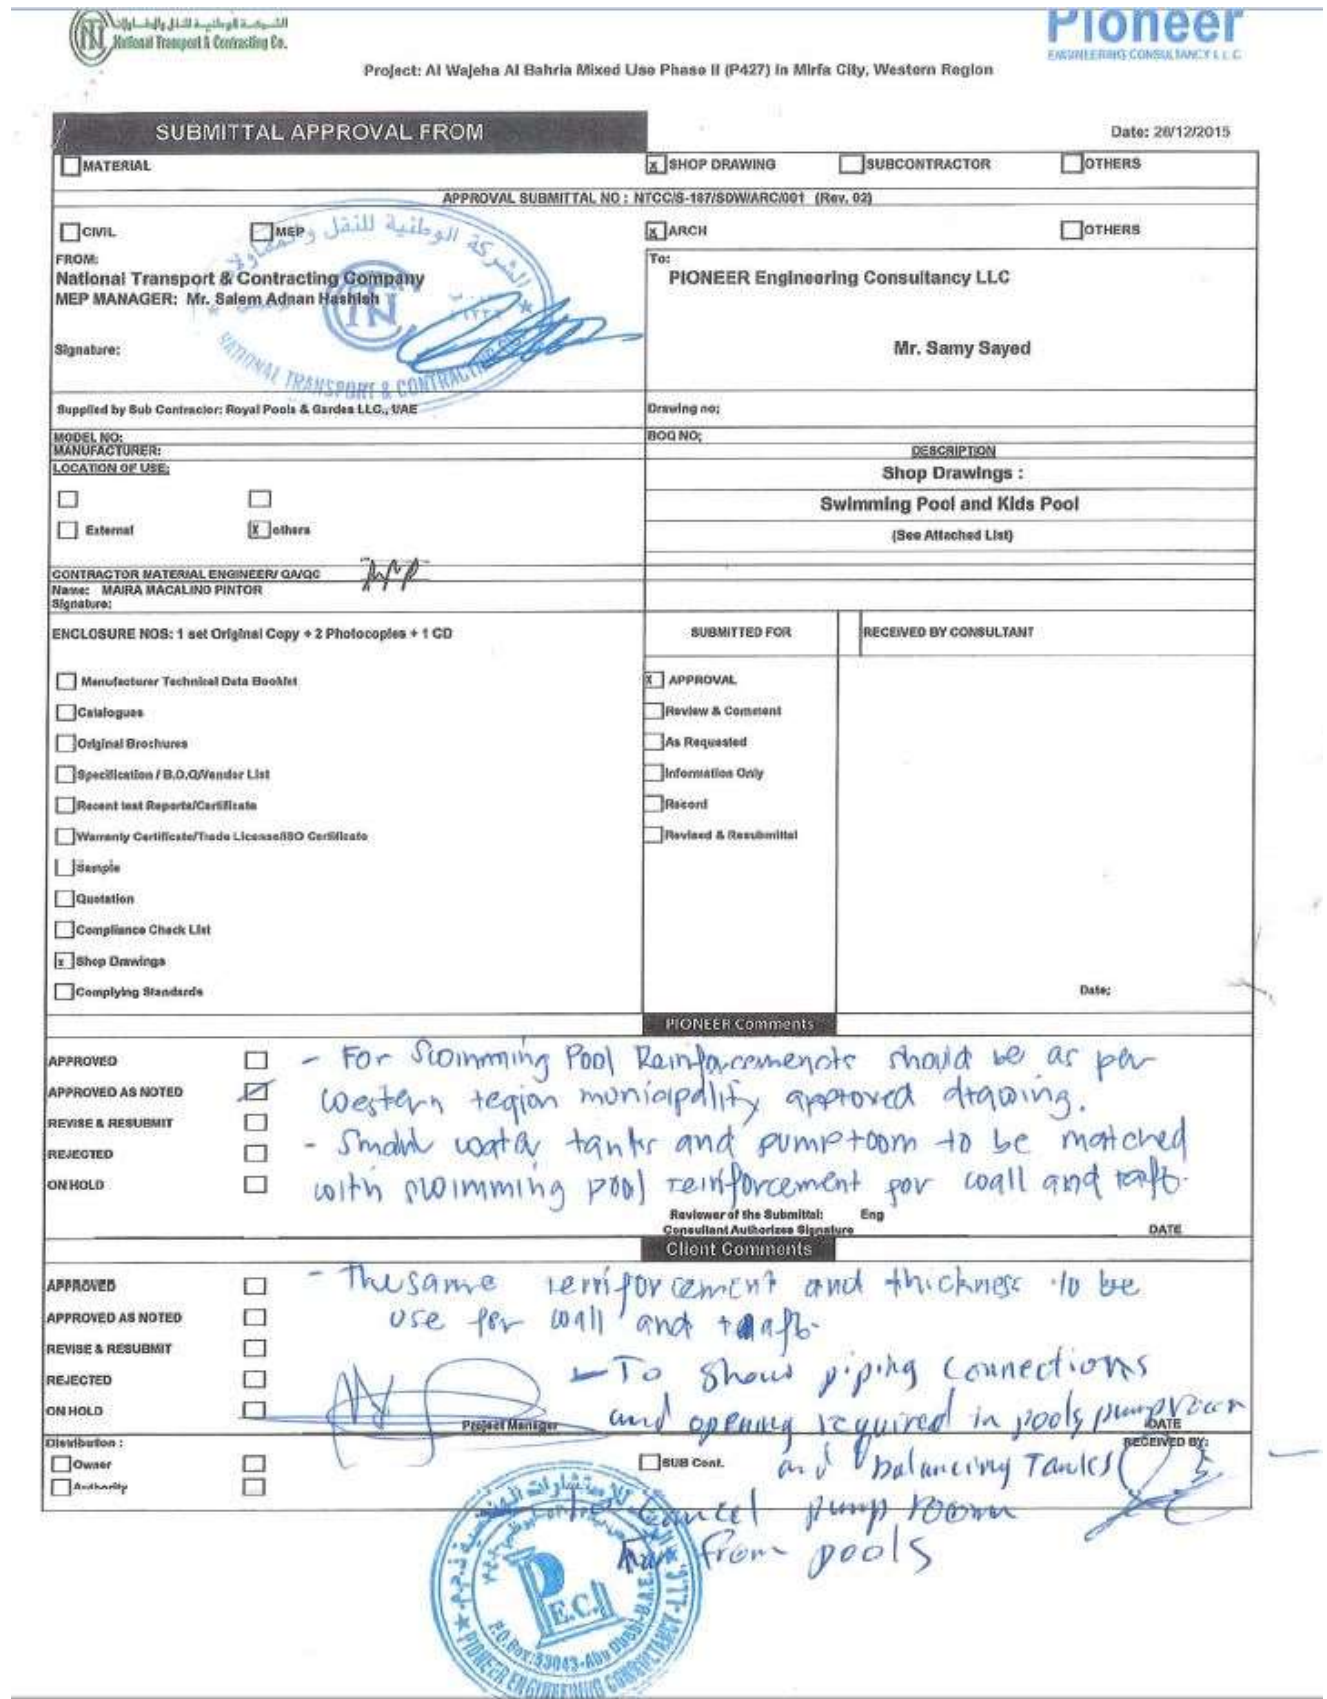 National Transport & Contracting Co.
Pioneer
ENGINEERING CONSULTANCY L.L.C
Project: Al Wajeha Al Bahria Mixed Use Phase II (P427) in Mirfa City, Western Region
SUBMITTAL APPROVAL FROM
Date: 28/12/2015
MATERIAL
x SHOP DRAWING
SUBCONTRACTOR
OTHERS
APPROVAL SUBMITTAL NO : NTCC/S-187/SDW/ARC/001 (Rev. 02)
CIVIL
MEP
x ARCH
OTHERS
FROM:
National Transport & Contracting Company
MEP MANAGER: Mr. Salem Adnan Hashish
Signature:
To:
PIONEER Engineering Consultancy LLC
Mr. Samy Sayed
NATIONAL TRANSPORT & CONTRACTING
Supplied by Sub Contractor: Royal Pools & Garden LLC., UAE
Drawing no;
MODEL NO:
BOQ NO;
MANUFACTURER:
DESCRIPTION
LOCATION OF USE;
Shop Drawings :
Swimming Pool and Kids Pool
External
X others
(See Attached List)
CONTRACTOR MATERIAL ENGINEER/ QA/QC
Name: MAIRA MACALINO PINTOR
Signature:
ENCLOSURE NOS: 1 set Original Copy + 2 Photocopies + 1 CD
SUBMITTED FOR
RECEIVED BY CONSULTANT
Manufacturer Technical Data Booklet
Catalogues
Original Brochures
Specification / B.O.Q/Vendor List
Recent test Reports/Certificate
Warranty Certificate/Trade License/ISO Certificate
Sample
Quotation
Compliance Check List
x Shop Drawings
Complying Standards
X APPROVAL
Review & Comment
As Requested
Information Only
Record
Revised & Resubmittal
Date;
PIONEER Comments
APPROVED
APPROVED AS NOTED
REVISE & RESUBMIT
REJECTED
ON HOLD
- For Swimming Pool Reinforcements should be as per
western region municipality approved drawing.
- Small water tanks and pump room to be matched
with swimming pool reinforcement for wall and raft.
Reviewer of the Submittal: Eng
Consultant Authorizes Signature
DATE
Client Comments
APPROVED
APPROVED AS NOTED
REVISE & RESUBMIT
REJECTED
ON HOLD
- The same reinforcement and thickness to be
use for wall and raft.
- To show piping connections
and opening required in pools pump room
and balancing Tanks
cancel pump room
from pools
Project Manager
DATE
Distribution :
RECEIVED BY:
Owner
SUB Cont.
Authority
P.E.C.
P.O.Box:53043-Abu Dhabi-U.A.E.
PIONEER ENGINEERING CONSULTANCY-L.L.C.